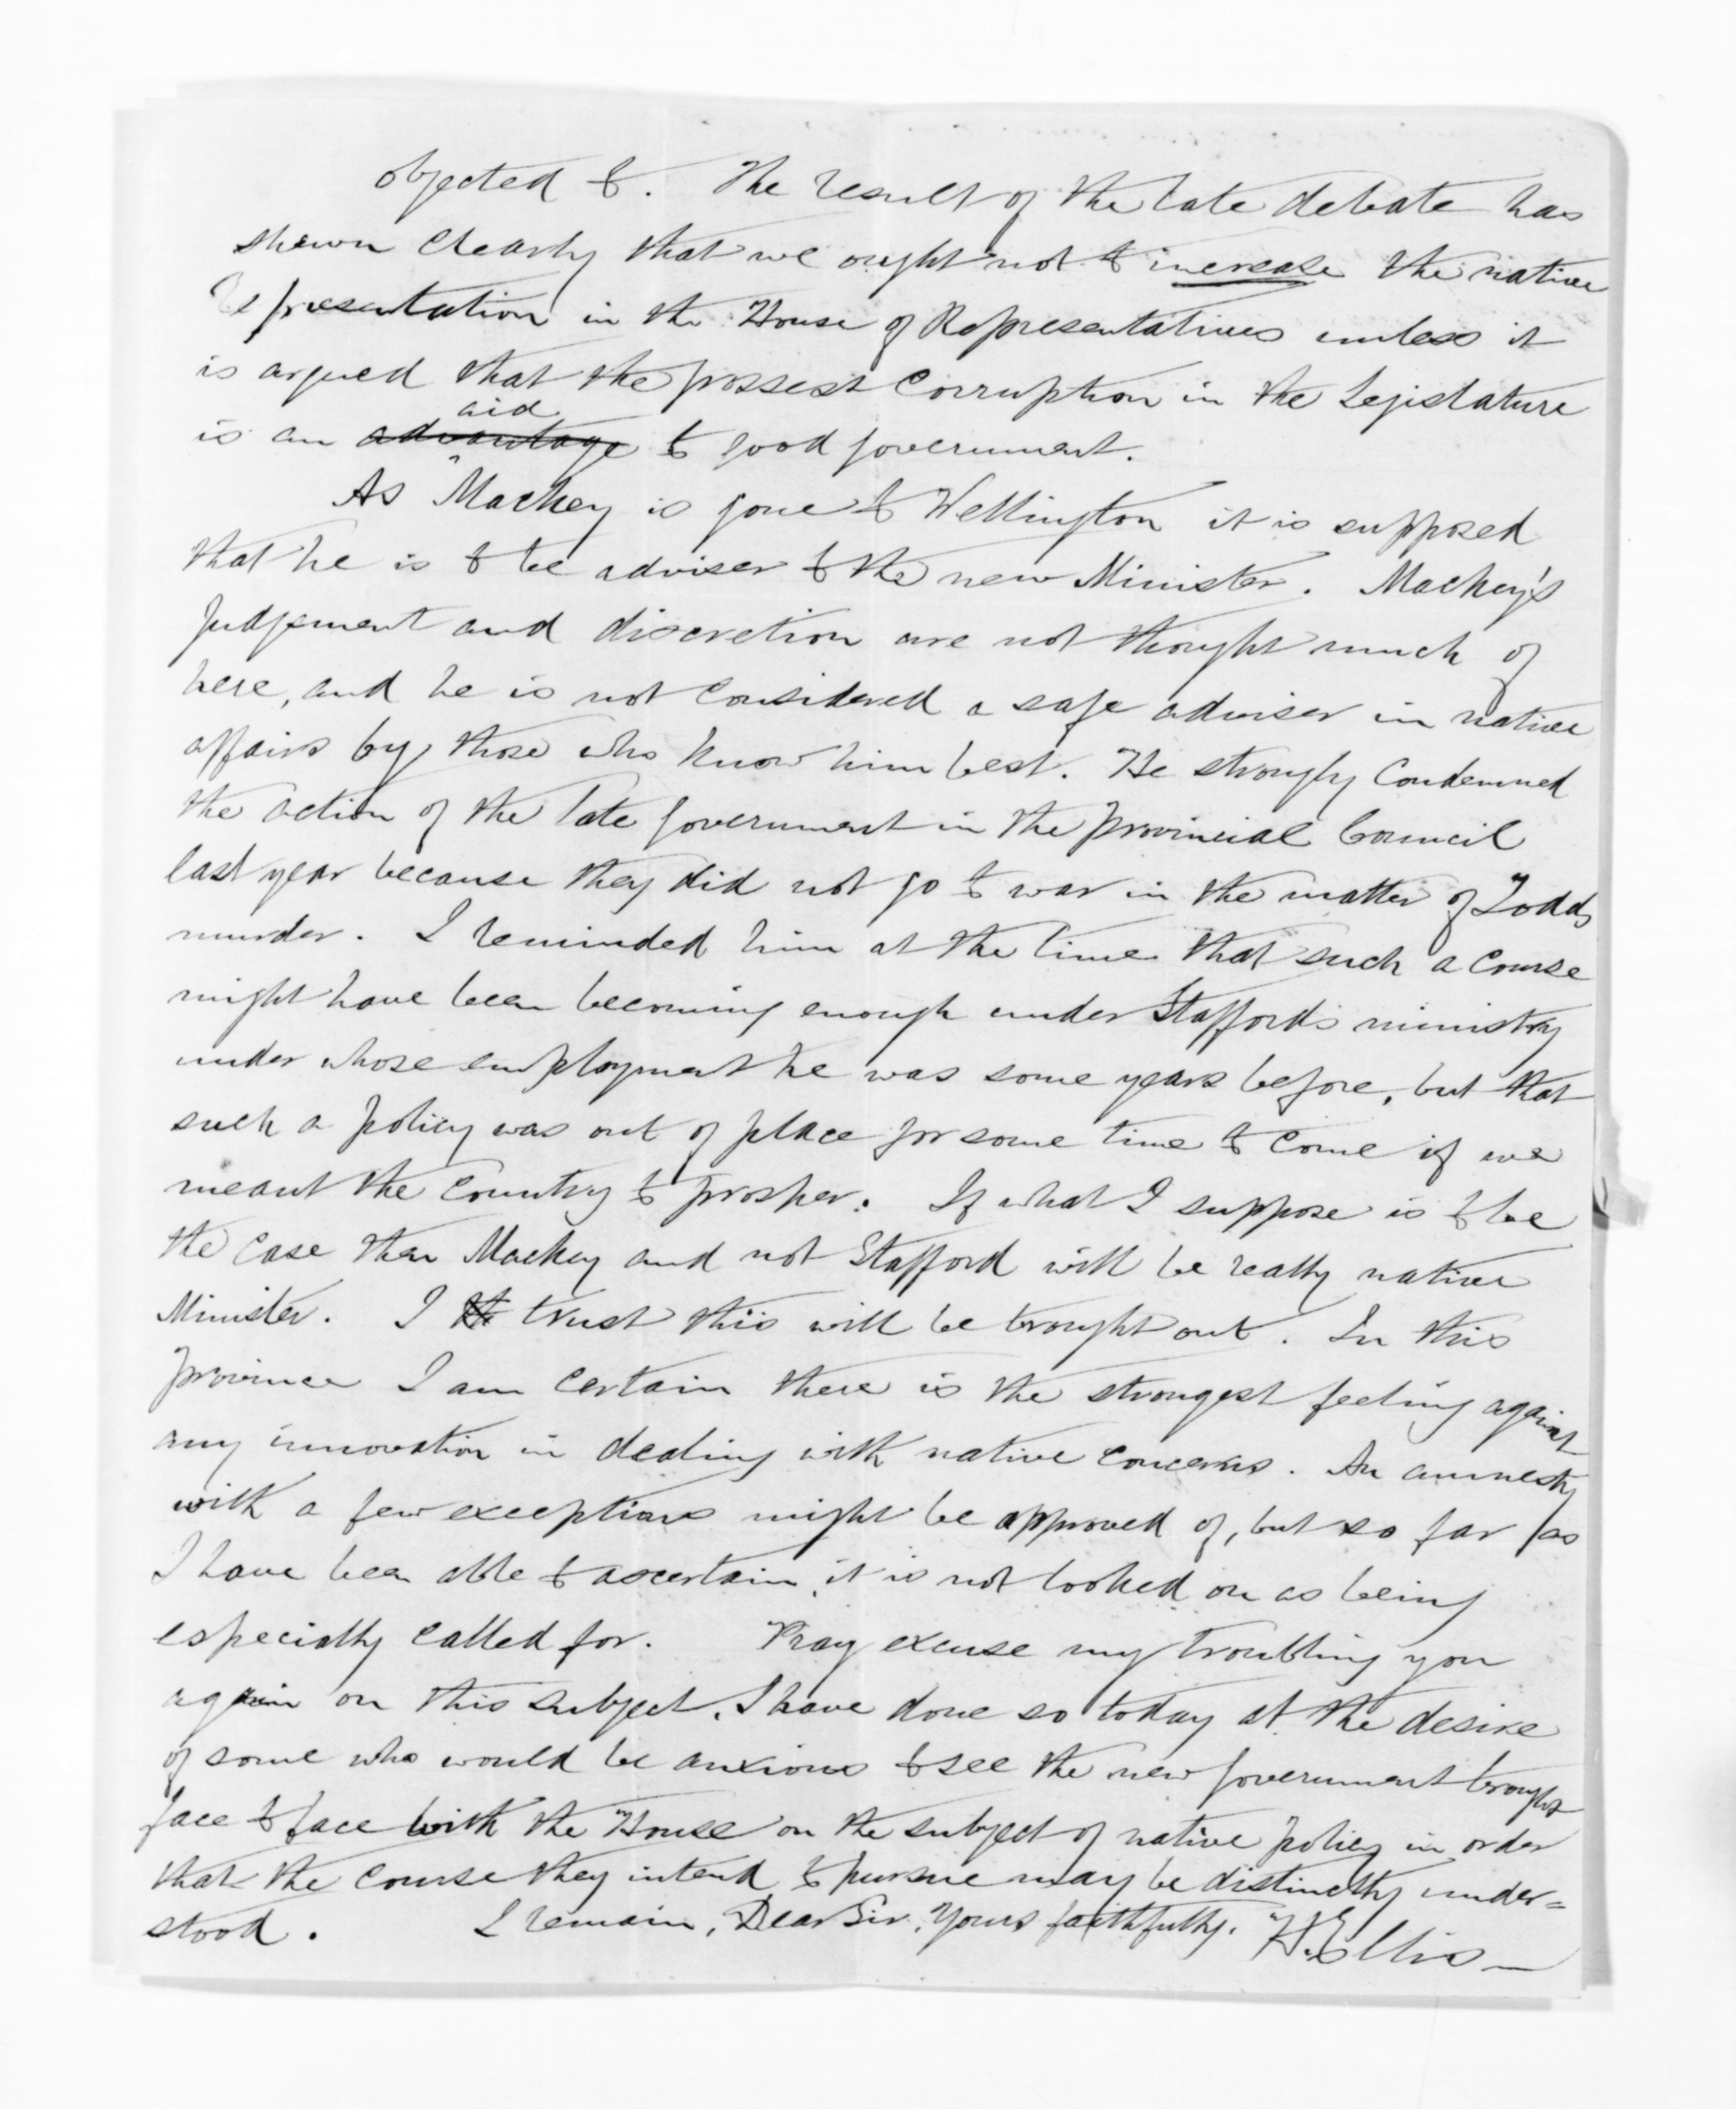 objected to. The result of the late debate has
shewn clearly that we ought not to increase the native
representation in the House of Representatives unless it
is argued that the grossest corruption in the Legislature
aid
is an advantage to good government.
As Mackay is gone to Wellington it is supposed
that he is to be adviser to the new Minister. Mackay's
judgement and discretion are not thought much of
here, and he is not considered a safe adviser in native
affairs by those who know him best. He strongly condemned
the action of the late government in the Provincial Council
last year because they did not go to war in the matter of Todds
murder. I reminded him at the time that such a course
might have been becoming enough under Stafford's ministry
under whose employment he was some years before, but that
such a policy was out of place for some time to come if we
meant the country to prosper. If what I suppose is to be
the case then Mackay and not Stafford will be really native
Minister. I th trust this will be brought out. In this
province I am certain there is the strongest feeling against
any innovation in dealing with native concerns. An amnesty
with a few exceptions might be approved of, but so far as
I have been able to ascertain, it is not looked on as being
especially called for. Pray excuse my troubling you
again on this subject. I have done so today at the desire
of some who would be anxious to see the new government brought
face to face with the House on the subject of native policy in order
that the course they intend to pursue may be distinctly under=
stood. I remain, Dear Sir, Yours faithfully. H Ellis